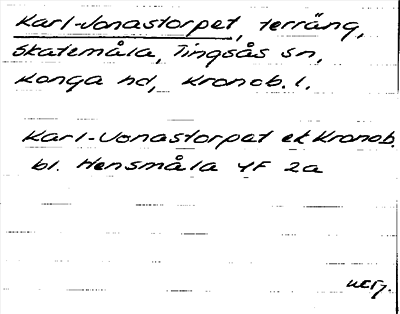 Karl-Jonastorpet, terräng,
Skatemåla, Tingsås sn,
Konga hd, Kronob. l.
Karl-Jonastorpet ek Kronob.
bl. Hensmåla 4F 2a